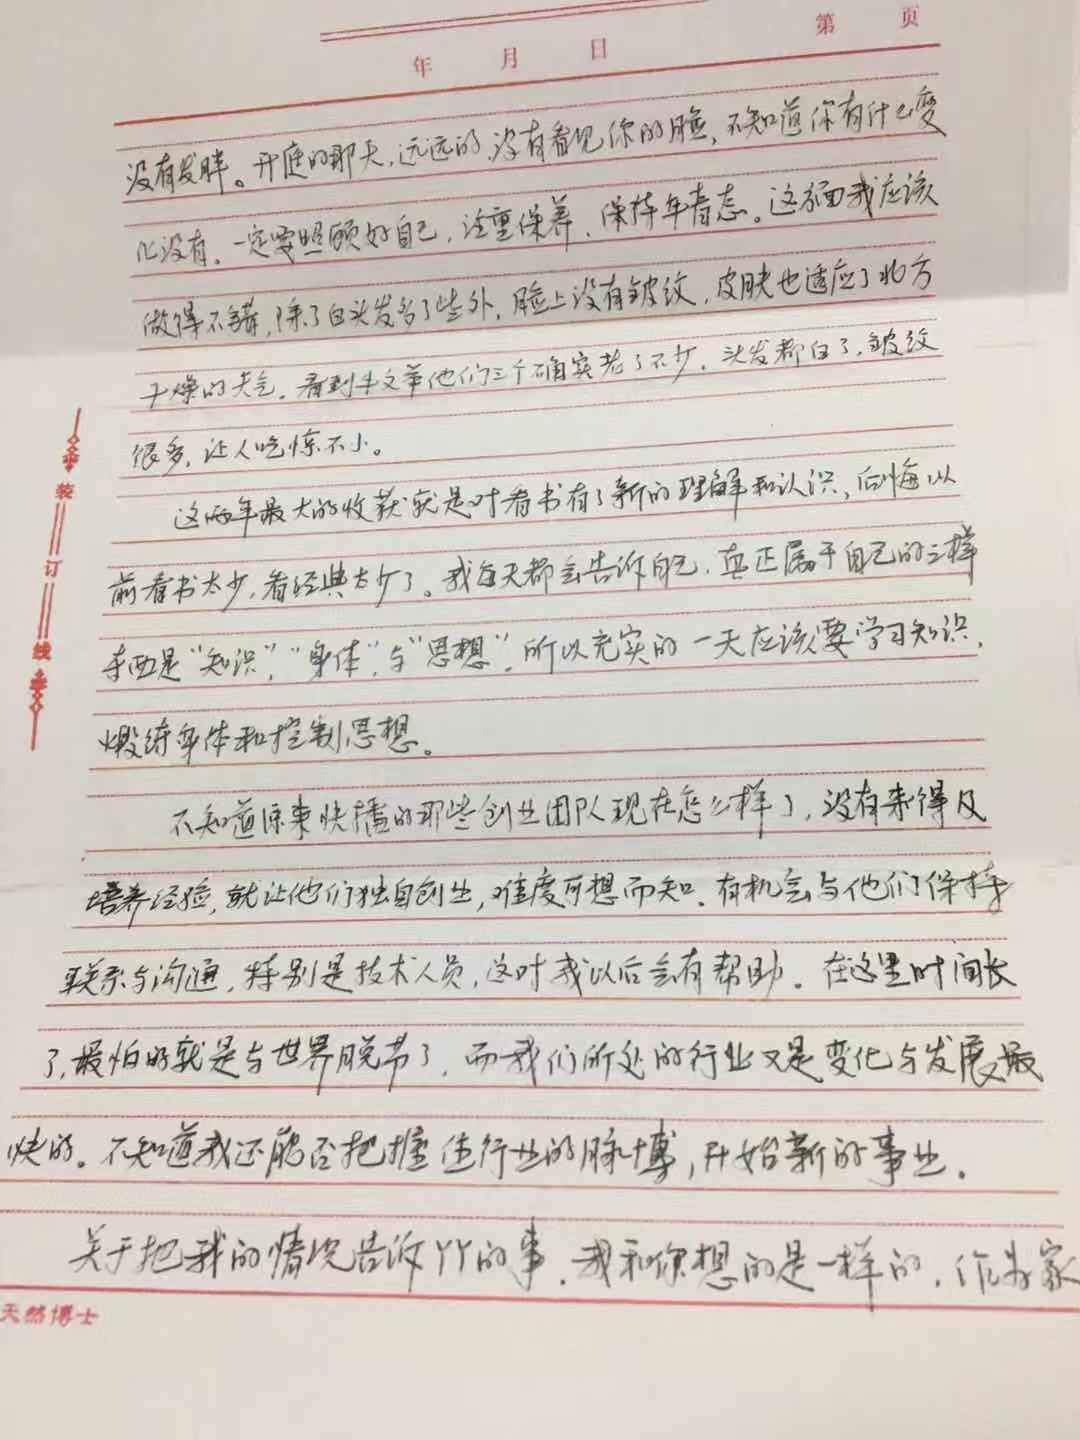 第 页
年 月 日
没有发胖。开庭的那天,远远的,没有看见你的脸,不知道你有什么变
化没有,一定要照顾好自己,注重保养,保持年青态。这方面我应该
做得不错,除了白头发多了些外,脸上没有皱纹,皮肤也适应了北方
干燥的天气。看到牛文举他们三个确实老了不少,头发都白了,皱纹
很多,让人吃惊不小。
这两年最大的收获就是对看书有了新的理解和认识,后悔以
前看书太少,看经典太少了。我每天都会告诉自己,真正属于自己的三样
东西是“知识”,“身体”,与“思想”,所以充实的一天应该要学习知识,
煅练身体和控制思想。
不知道原来快播的那些创业团队现在怎么样了,没有来得及
培养经验,就让他们独自创业,难度可想而知。有机会与他们保持
联系与沟通,特别是技术人员,这对我以后会有帮助。在这里时间长
了,最怕的就是与世界脱节了,而我们所处的行业又是变化与发展最
快的。不知道我还能否把握住行业的脉博,开始新的事业。
关于把我的情况告诉丫丫的事,我和你想的是一样的,作为家
装订线
天然博士